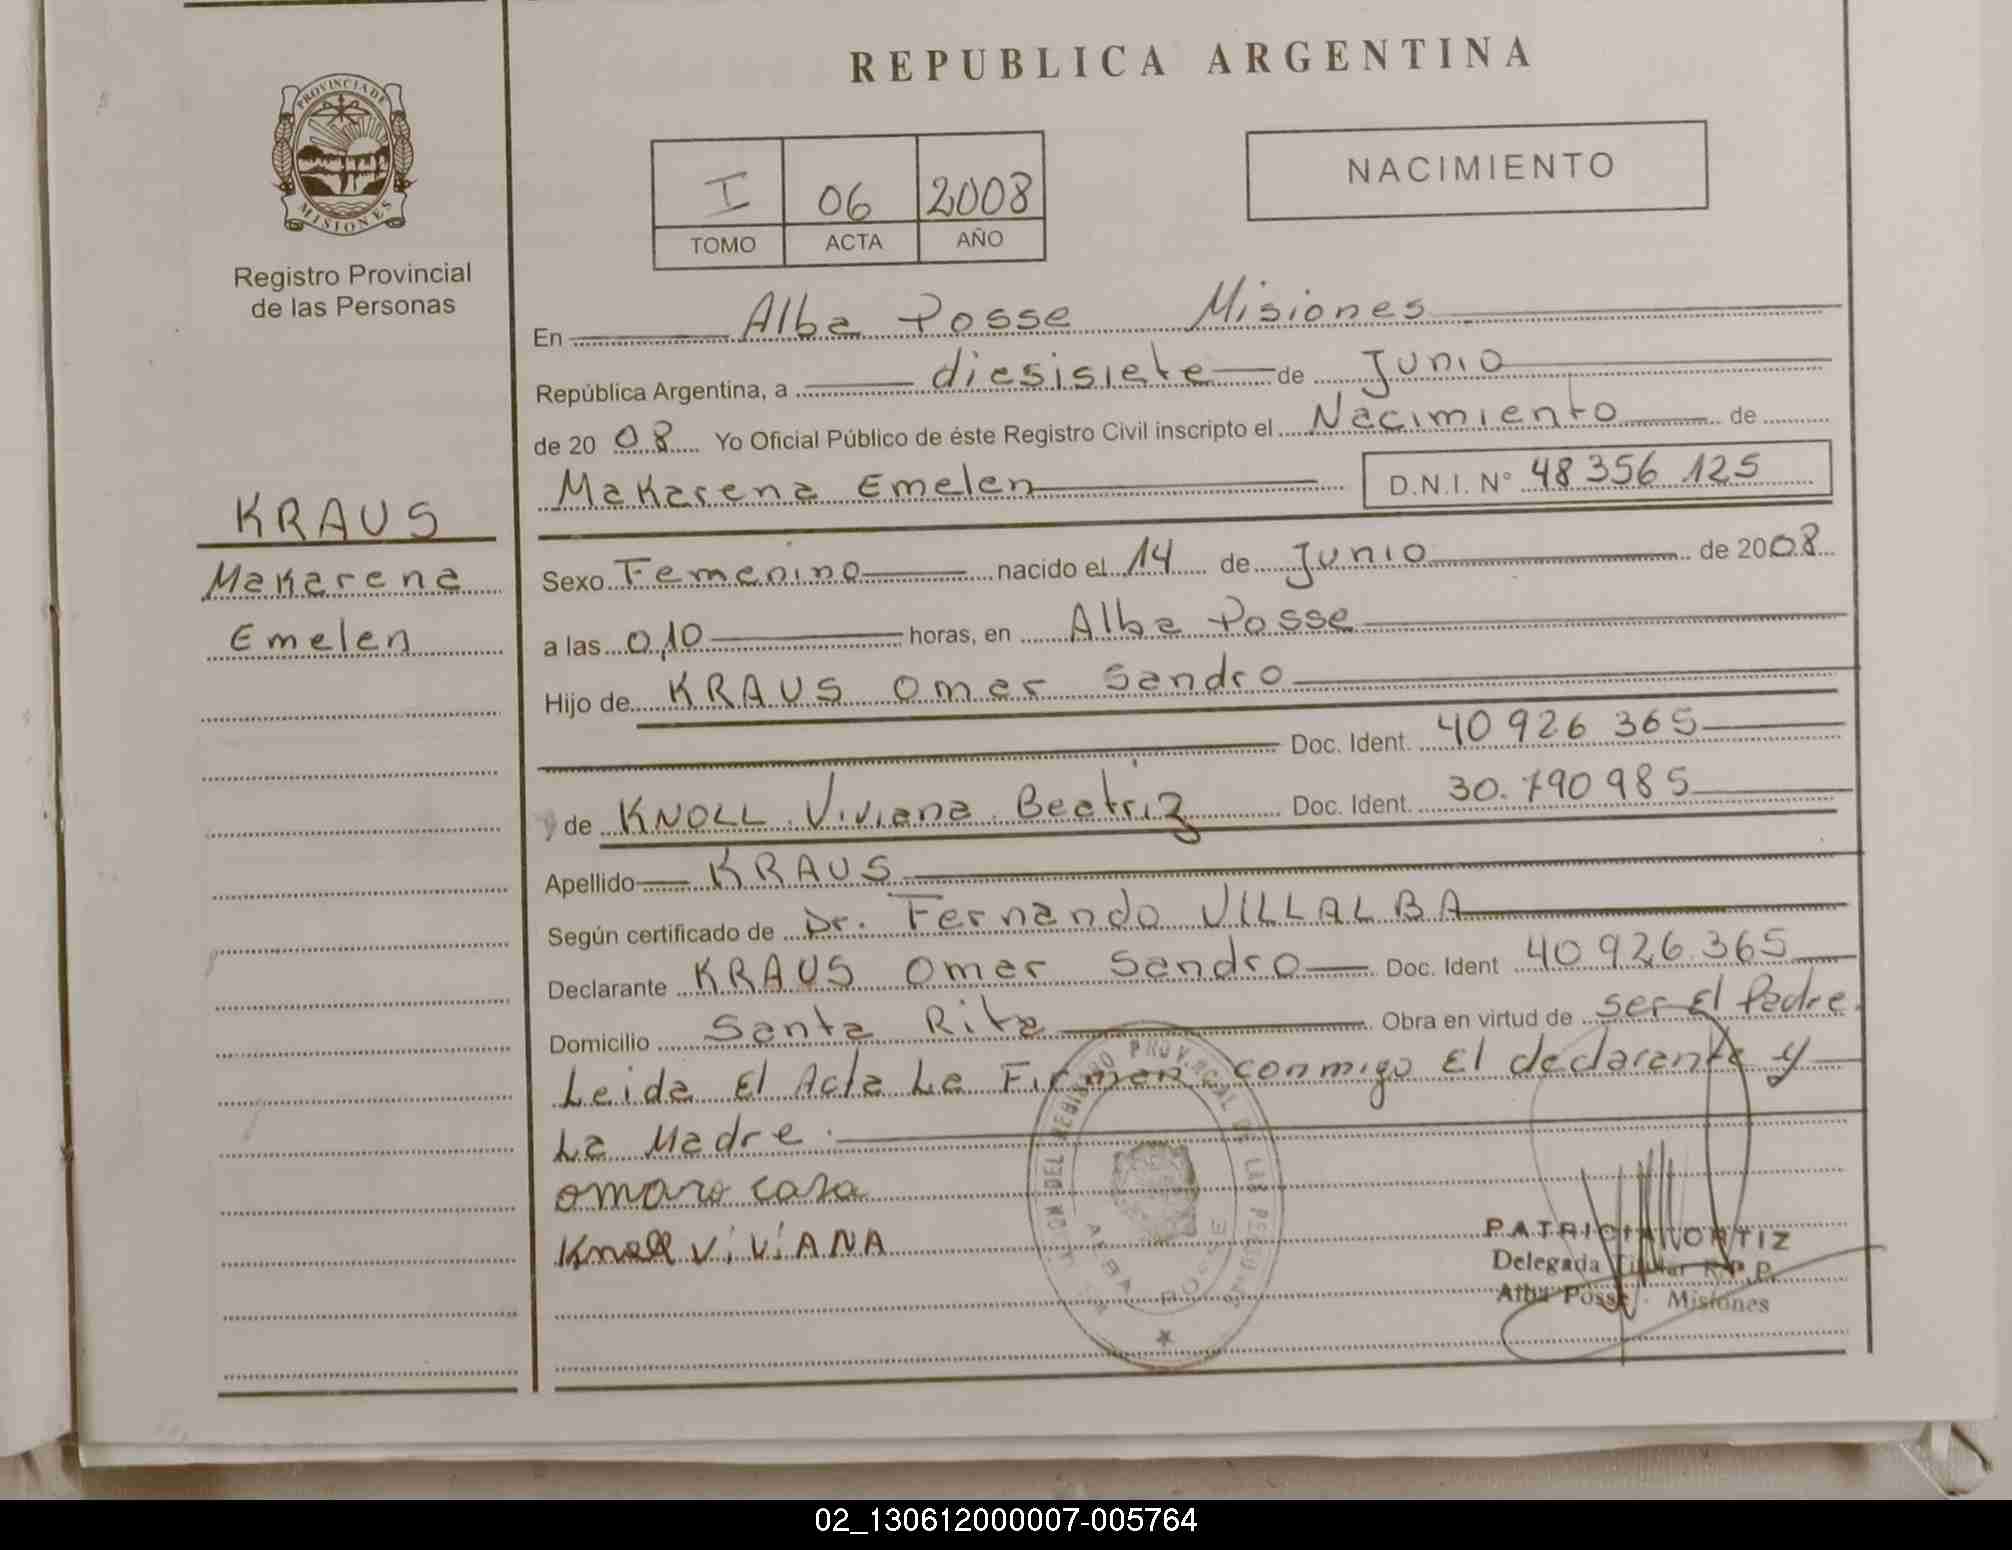 REPUBLICA ARGENTINA
PROVINCIA DE
MISIONES
Registro Provincial
de las Personas
I 06 2008
TOMO ACTA AÑO
NACIMIENTO
En Alba Posse Misiones
República Argentina, a diesisiete de Junio
de 20 08 Yo Oficial Público de éste Registro Civil inscripto el Nacimiento de
Makarena Emelen D.N.I. N° 48 356 125
KRAUS
Makarena
Emelen
Sexo Femenino nacido el 14 de Junio de 2008
a las 0,10 horas, en Alba Posse
Hijo de KRAUS Omar Sandro
Doc. Ident. 40 926 365
y de KNOLL Viviana Beatriz Doc. Ident. 30.790 985
Apellido KRAUS
Según certificado de Dr. Fernando VILLALBA
Declarante KRAUS Omar Sandro Doc. Ident 40 926.365
Domicilio Santa Rita Obra en virtud de ser El Padre.
Leida El Acta La Firman conmigo El declarante y
La Madre.
Knoll ViViANA
PATRICIA ORTIZ
Delegada Titular R.P.P.
Alba Posse - Misiones
02_130612000007-005764